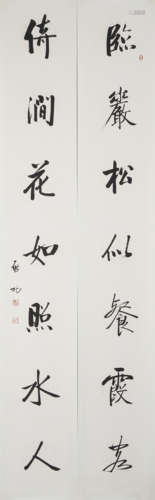 臨巖松似餐霞客
倚澗花如照水人